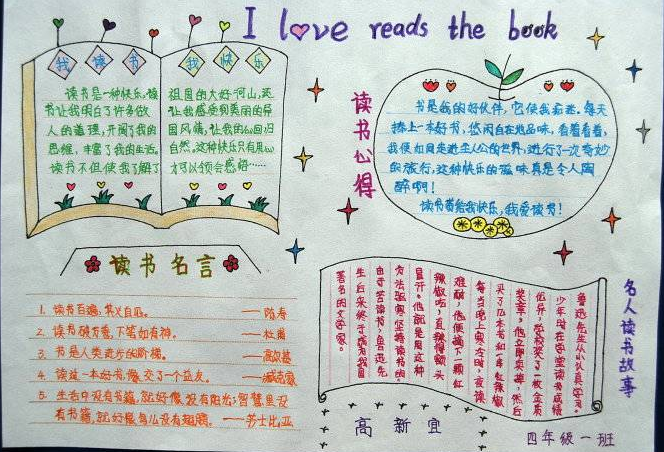 I love reads the book
我 读 书 我 快 乐
读书是一种快乐,读
书让我明白了许多做
人的道理,开阔了我的
思维,丰富了我的生活。
读书不但使我了解了
祖国的大好河山,还
让我感受到美丽的异
国风情,让我的心回归
自然,这种快乐只有用心
才可以领会感悟……
读书心得
书是我的好伙伴,它使我着迷。每天
捧上一本好书,悠闲自在地品味,看着看着,
我便如同走进主人公的世界,进行了一次奇妙
的旅行,这种快乐的滋味真是令人陶
醉啊!
读书带给我快乐,我爱读书!
读书名言
1. 读书百遍,其义自见。 ——陈寿
2. 读书破万卷,下笔如有神。 ——杜甫
3. 书是人类进步的阶梯。 ——高尔基
4. 读过一本好书,像交了一个益友。 ——臧克家
5. 生活中没有书籍,就好像没有阳光;智慧里没
有书籍,就好像鸟儿没有翅膀。 ——莎士比亚
名人读书故事
鲁迅先生从小认真学习。
少年时在学堂读书成绩
优异,学校奖了一枚金质
奖章,他立即卖掉,然后
买了几本书和一串红辣椒
每当晚上寒冷时,夜读
难耐,他便摘下一颗红
辣椒吃,直辣得额头
冒汗。他就是用这种
方法驱寒坚持读书的,
由于苦读书,鲁迅先
生后来终于成为我国
著名的文学家。
高新宜
四年级一班